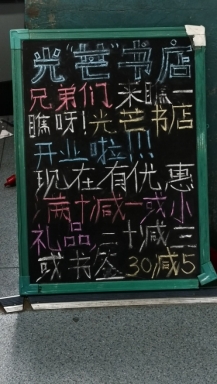 光"芒"书店
兄弟们来瞧一
瞧呀!光芒书店
开业啦!!!
现在有优惠
满十减一或小
礼品 二十减三
或书签 30减5